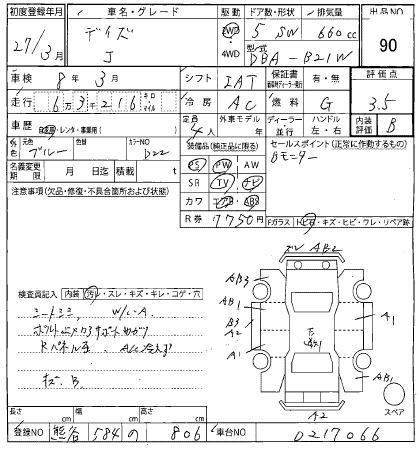 初度登録年月 車名・グレード 駆動 ドア数・形状 排気量 出品NO
27/3月 デイズ J 2WD 4WD 5 SW 660cc 90
型式 DBA-B21W
車検 8年3月 シフト IAT 保証書 有・無 評価点
走行 6万3千216 キロ・マイル 冷房 AC 燃料 G 3.5
車歴 自家用・レンタ・事業用( ) 定員 4人 外車モデル 年 ディーラー・並行 ハンドル 左・右 内装評価 B
外色 元色 ブルー 色替 カラーNO B22 装備品(純正品に限る) セールスポイント(正常に作動するもの)
名義変更期限 月 日迄 積載 t PS PW AW Bモニター
注意事項(欠品・修復・不具合箇所および状態) SR TV ナビ
カワ エアB ABS
R券 7750円 Fガラス トビ石・キズ・ヒビ・ワレ・リペア跡
AB2
検査員記入 内装 汚レ・スレ・キズ・キレ・コゲ・穴 AB3
シートシミ、 W/L・A AB1 A1
B3
A2
A/C冷えず A1
キズ・B AB1
A2 スペア
長さ cm 幅 cm 高さ cm
登録NO 熊谷 584 の 806 車台NO 0217066